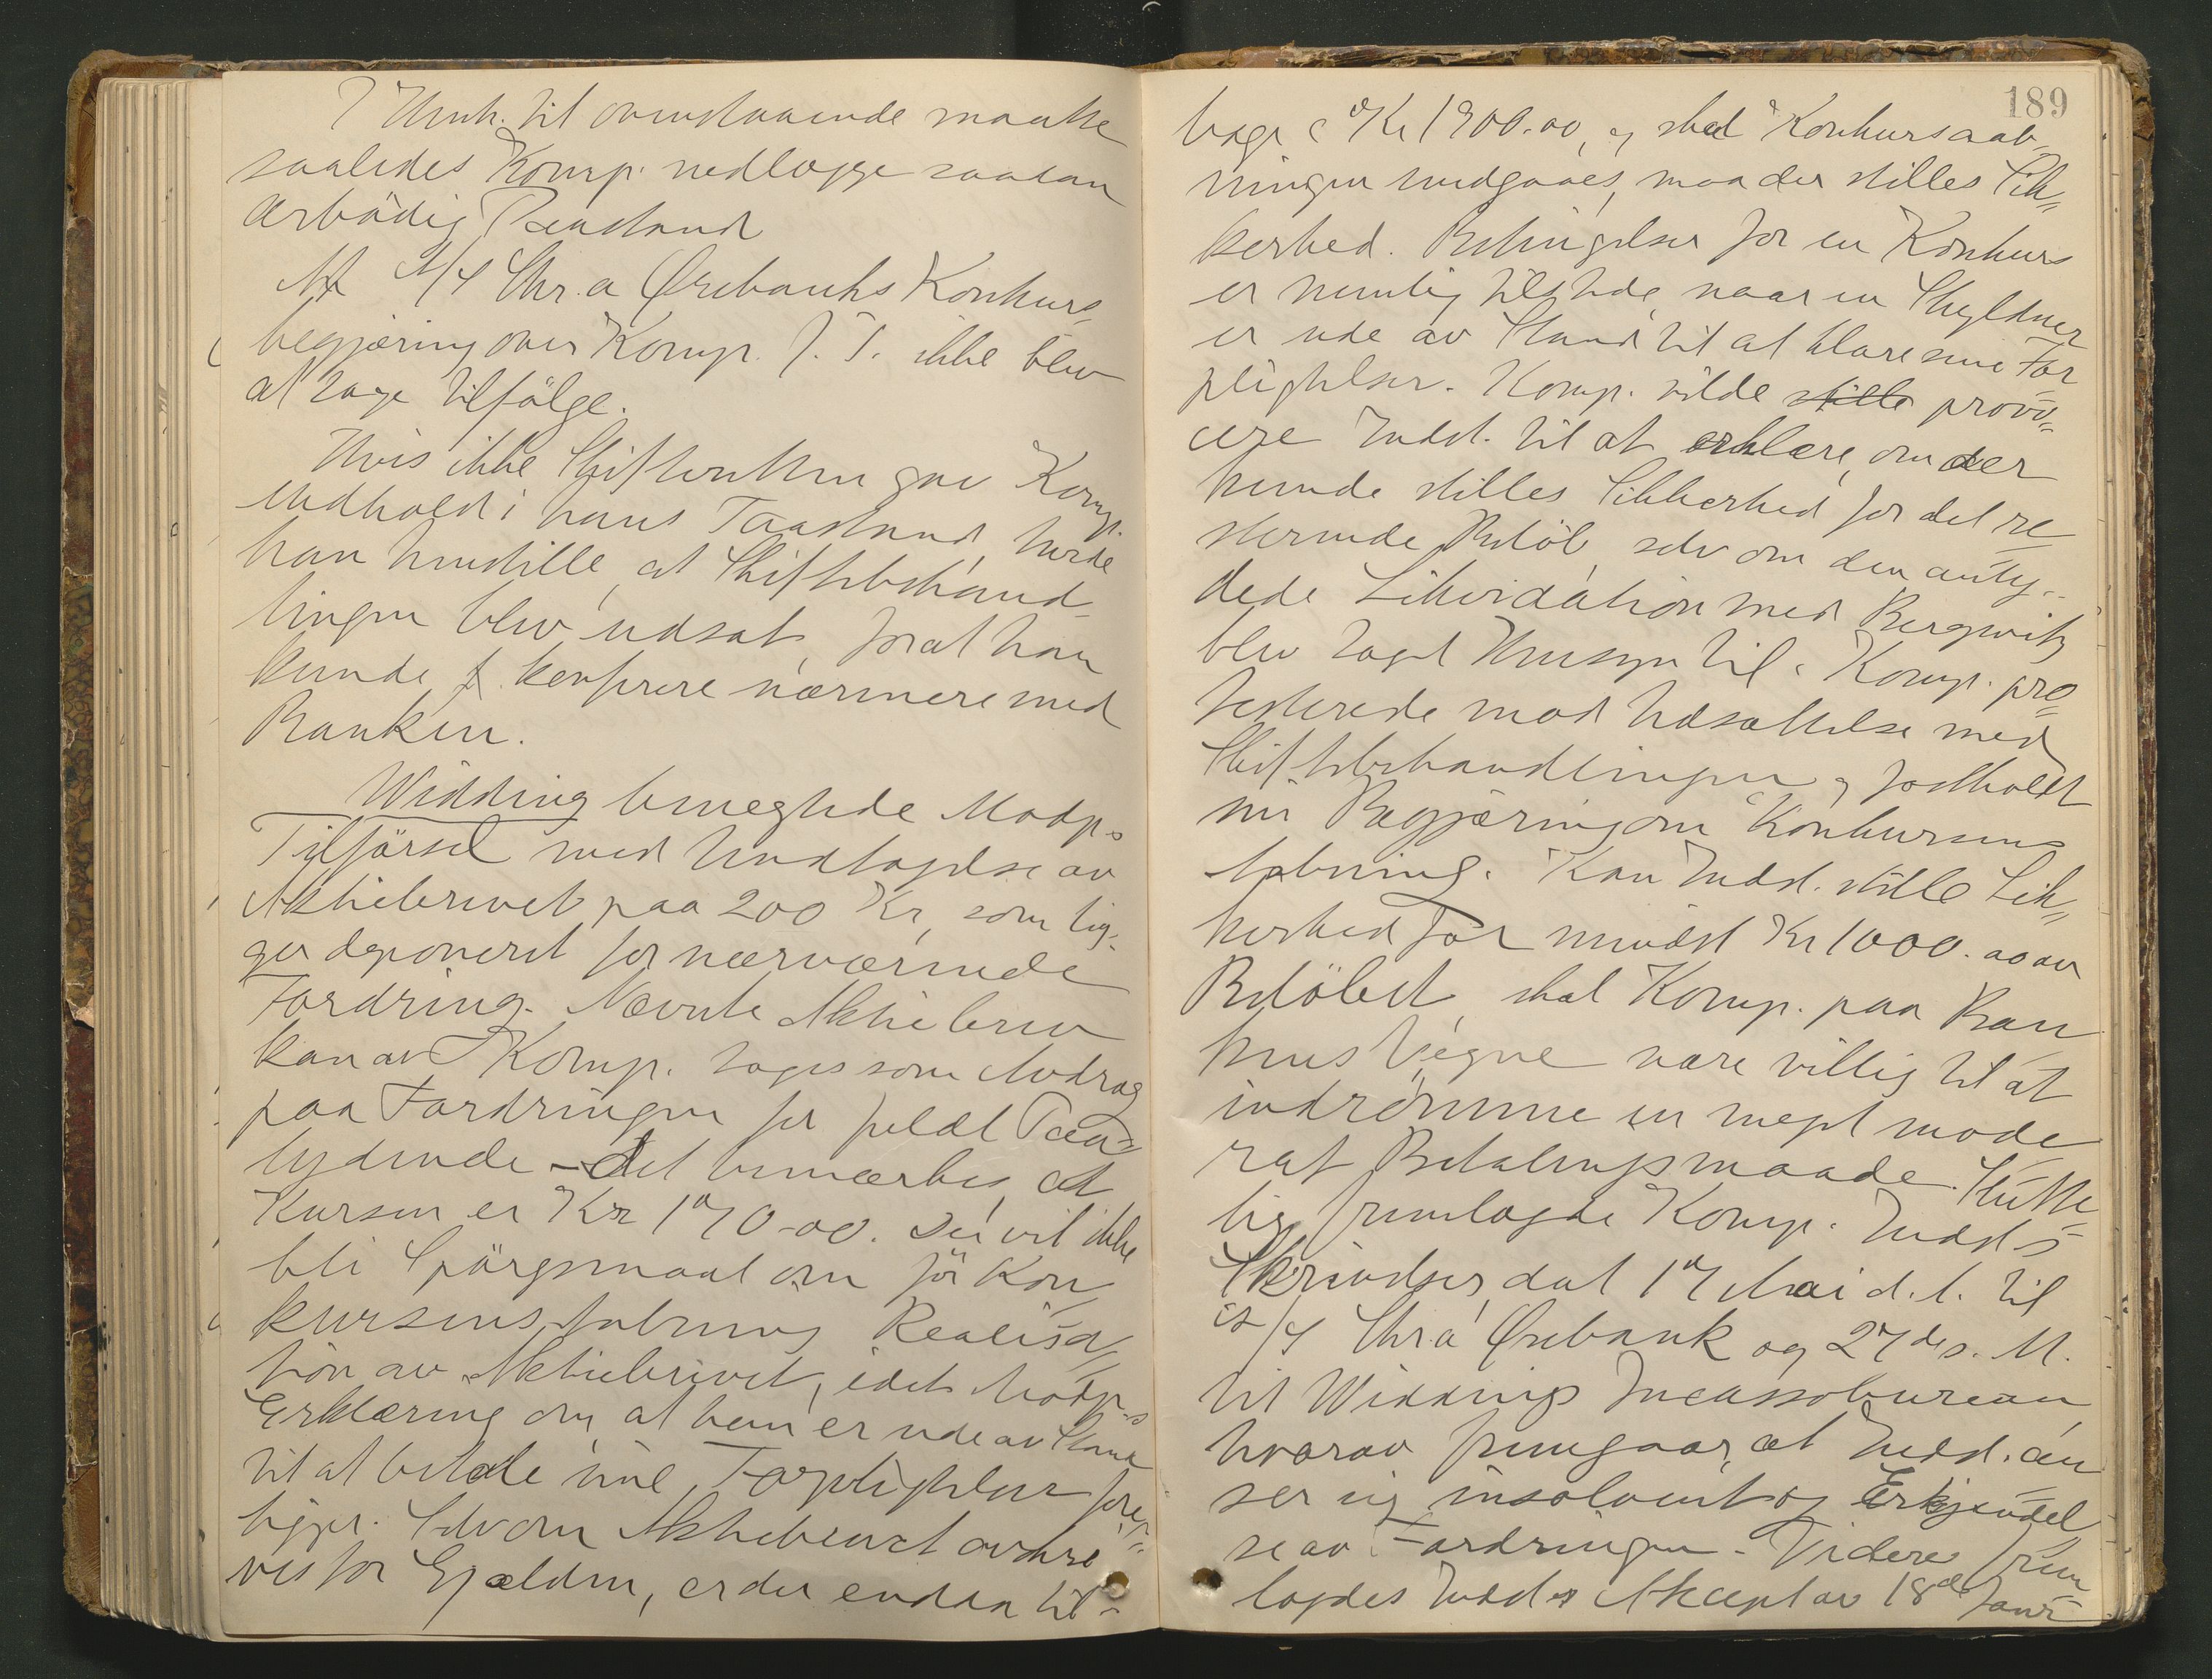 I Henh. til ovenstaaende maatte
saaledes Komp. nedlægge saadan
ærbödig Paastand
At A/S Chr.a Örebanks Konkurs=
begjæring over Komp. J. T. ikke blev
at tage tilfölge.
Hvis ikke Skifteretten gav Komp.
Medhold i hans Paastand, turde
han henstille, at Skiftebehand=
lingen blev udsat, forat han
kunde konferere nærmere med
Banken.
Widding benegtede Modp.s
Tilförsel med Undtagelse av
Aktiebrevet paa 200 Kr, som lig=
ger deponeret for nærværende
Fordring. Nævnte Aktiebrev
kan av Komp. tages som Avdrag
paa Fordringen for fuldt Paa=
lydende – det bemærkes, at
Kursen er Kr 170-00. Der vil ikke
bli Spörgsmaal om för Kon=
kursens Aabning Realisa=
tion av Aktiebrevet, idet Modp.s
Erklæring om, at han er ude av Stand
til at betale sine Forpligtelser fore=
ligger. Selv om Aktiebrevet avskre=
ves for Gjælden, er der endda til=
189
bage c Kr 1900.00, og skal Konkursaab=
ningen undgaaes, maa der stilles Sik=
kerhed. Betingelser for en Konkurs
er nemlig tilstede, naar en Skyldner
er ude av Stand til at klare sine For=
pligtelser. Komp. vilde stille provo=
cere Indst. til at erklære, om der
kunde stilles Sikkerhed for det re=
sterende Beløb, selv om den anty=
dede Likvidation med Bergwitz
blev taget Hensyn til. Komp. pro=
testerede mod Udsættelse med
Skiftebehandlingen og fastholdt
sin Begjæring om Konkursens
Aabning. Kan Indst. stille Sik=
kerhed for mindst Kr 1000.00 av
Belöbet, skal Komp. paa Ban
kens Vegne være villig til at
indrömme en meget mode
rat Betalingsmaade. Slutte=
lig fremlagde Komp. Indst.s
Skrivelser dat 17 Mai d. A. til
A/S Chr.a Örebank og 27 ds. M.
til Widdings Incassobureau,
hvorav fremgaar, at Indst. an=
ser sig insolvent og Erkjendel=
se av Fordringen. Videre frem
lagdes Indst.s Akcept av 18de Janu=